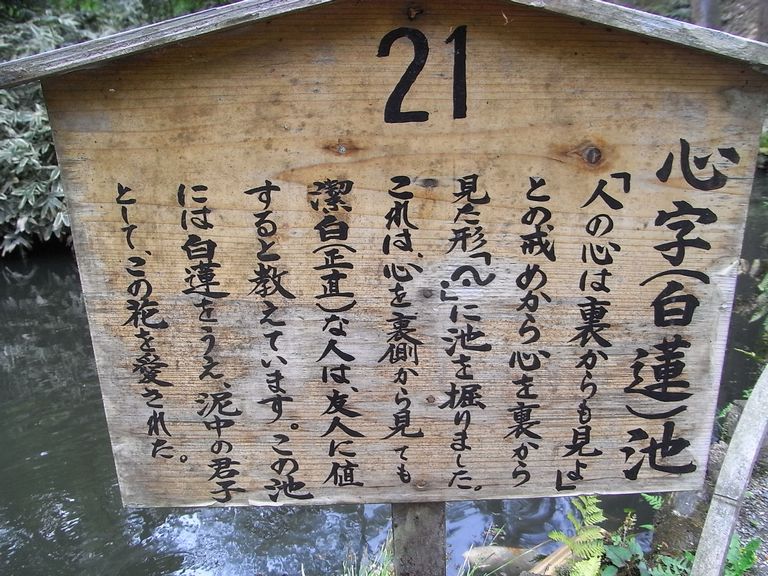 21
心字(白蓮)池
「人の心は裏からも見よ」
との戒めから心を裏から
見た形「」に池を掘りました。
これは、心を裏側から見ても
潔白(正直)な人は、友人に値
すると教えています。この池
には白蓮をうえ、泥中の君子
として、この花を愛された。